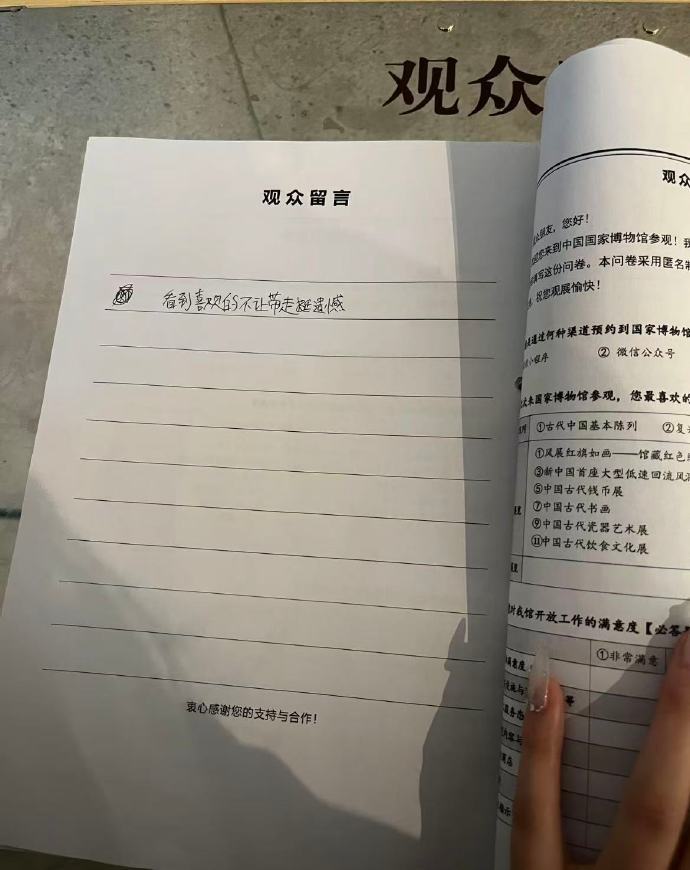 观众
观众留言
看到喜欢的不让带走挺遗憾
衷心感谢您的支持与合作！
观众
朋友，您好！
来到中国国家博物馆参观！
填写这份问卷。本问卷采用匿名制
祝您观展愉快！
是通过何种渠道预约到国家博物馆
小程序 ② 微信公众号
次来国家博物馆参观，您最喜欢的
①古代中国基本陈列 ②复
①风展红旗如画——馆藏红色
③新中国首座大型低速回流风洞
⑤中国古代钱币展
⑦中国古代书画
⑨中国古代瓷器艺术展
⑪中国古代饮食文化展
对我馆开放工作的满意度【必答
满意度 ①非常满意
设施与 等
服务态
内容与
商店
指示